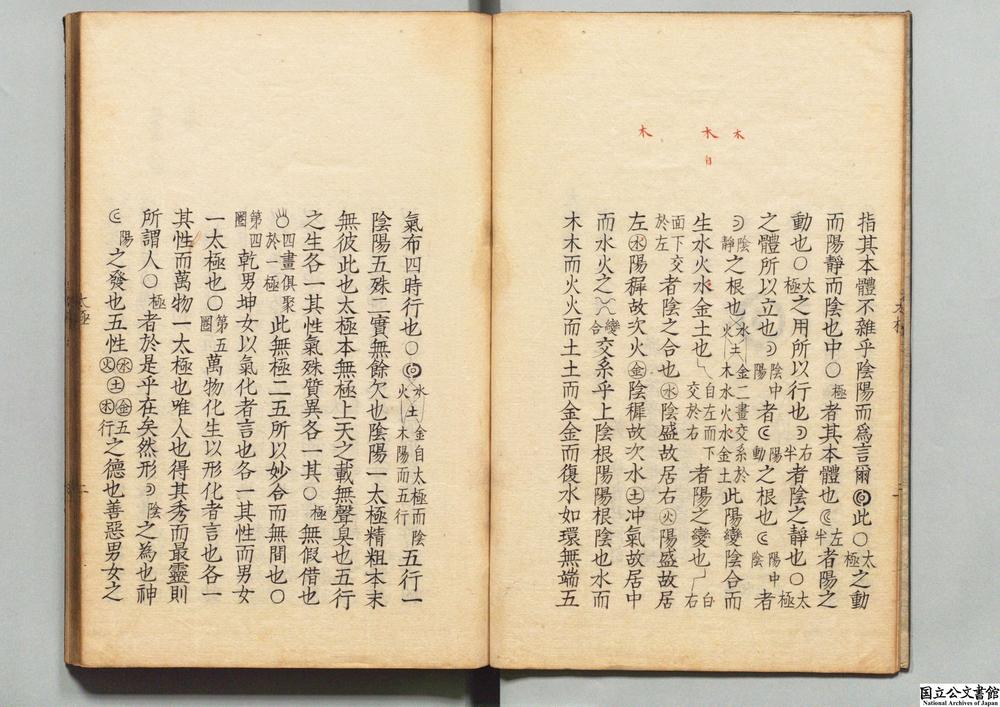 木 木 木
自
指其本體不雜乎陰陽而爲言爾此〇太極之動
而陽靜而陰也中〇極者其本體也左半者陽之
動也〇太極之用所以行也右半者陰之靜也〇太極
之體所以立也陰中陽者陽動之根也陽中陰者
陰靜之根也水火土木金二畫交系於水火水金土此陽變陰合而
生水火木金土也自左而下交於右者陽之變也自右
面下交於左者陰之合也水陰盛故居右火陽盛故居
左木陽穉故次火金陰穉故次水土冲氣故居中
而水火之變合交系乎上陰根陽陽根陰也水而
木木而火火而土土而金金而復水如環無端五
氣布四時行也〇水火土金木自太極而陰陽而五行五行一
陰陽五殊二實無餘欠也陰陽一太極精粗本末
無彼此也太極本無極上天之載無聲臭也五行
之生各一其性氣殊質異各一其〇極無假借也
四畫俱聚於一極此無極二五所以妙合而無間也〇
第四圈乾男坤女以氣化者言也各一其性而男女
一太極也〇第五圈萬物化生以形化者言也各一
其性而萬物一太極也唯人也得其秀而最靈則
所謂人〇極者於是乎在矣然形陰之為也神
陽之發也五性水火土金木五行之德也善惡男女之
太極
二
国立公文書館
National Archives of Japan